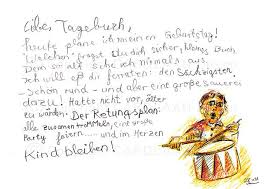 Liebes Tagebuch,
heute plane ich meinen Geburtstag!
"Welchen" fragst Du dich sicher, kleines Buch
Denn so alt sehe ich niemals aus.
Ich will es dir verraten: den Sechzigsten,
-Schön rund- und aber eine große sauerei
dazu! Hatte nicht vor, älter
zu werden. Der Rettungsplan:
alle zusammentrommeln, eine große
Party feiern..... und im Herzen
Kind bleiben!